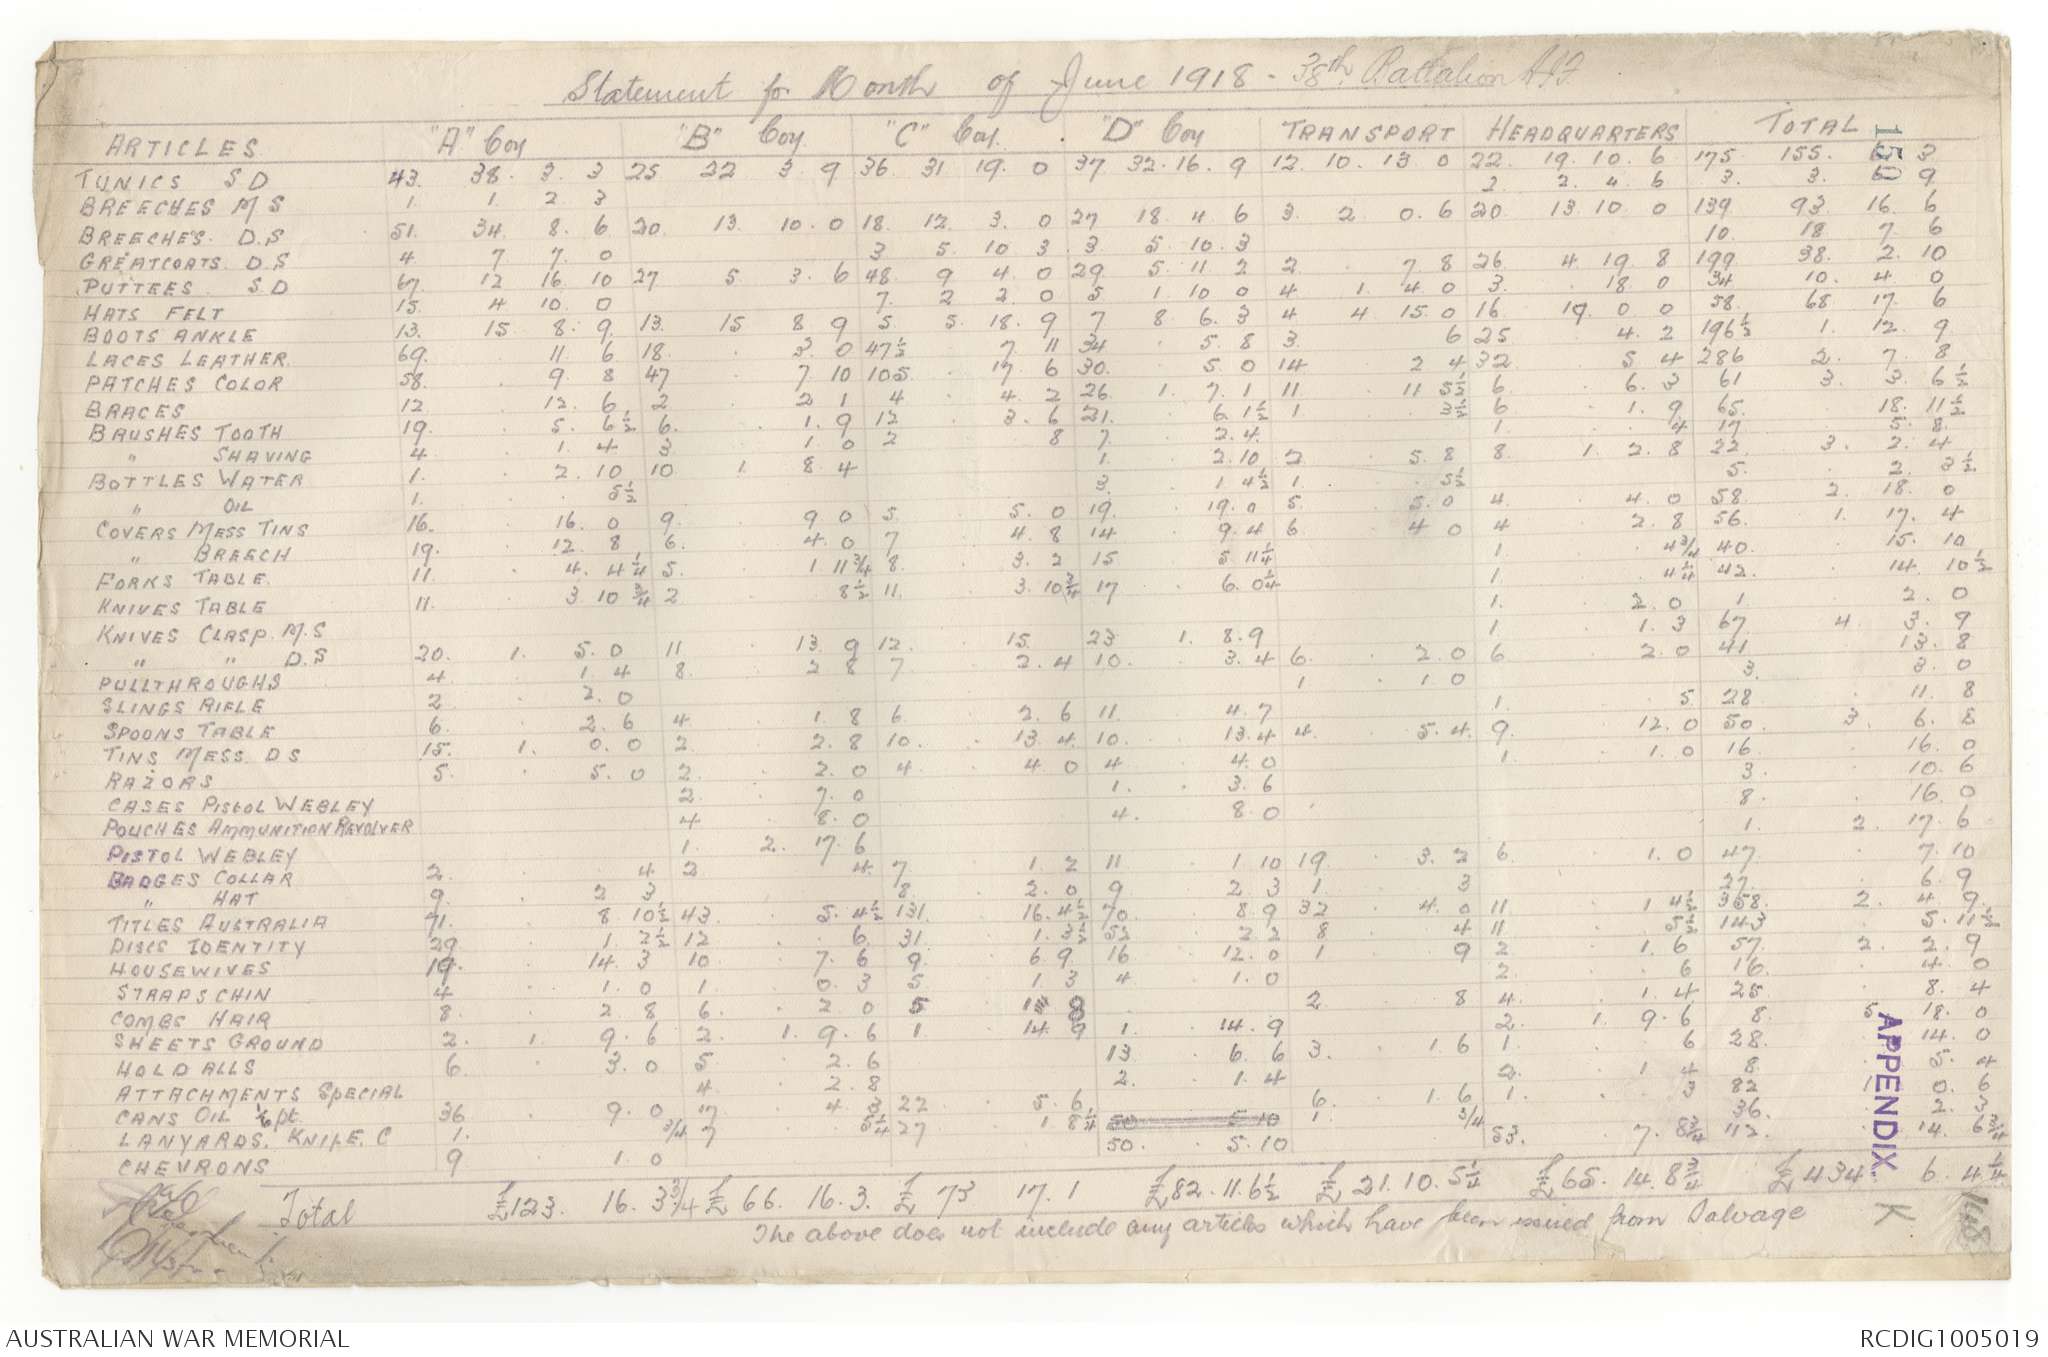 Statement for Month of June 1918 - 38th Battalion AIF
ARTICLES "A" Coy "B" Coy "C" Coy. "D" Coy TRANSPORT HEADQUARTERS TOTAL
TUNICS S D 43. 38. 3. 3 25 22 3 9 36 31 19. 0 37 32. 16. 9 12. 10. 13 0 22. 19. 10. 6 175 155. 3
BREECHES M S 1. 1. 2 3 2 2. 4. 6 3. 3. 6 9
BREECHES. D.S 51. 34. 8. 6 20. 13. 10. 0 18. 12 3. 0 27 18. 4 6 3. 2 0. 6 20 13 10. 0 139 93. 16. 6
GREATCOATS. D S 4 7 7. 0 3 5. 10 3 3. 5 10. 3 10. 18 7 6
PUTTEES S D 67. 12 16. 10 27. 5 3. 6 48. 9 4. 0 29. 5. 11 2 2. 7. 8 26 4 19 8 199 38. 2. 10
HATS FELT 15. 4 10. 0 7. 2 2. 0 5. 1. 10 0 4 1. 4 0 3. 18 0 34 10. 4 0
BOOTS ANKLE 13. 15 8. 9. 13. 15 8 9 5 5. 18. 9 7 8 6. 3 4 4 15. 0 16 19. 0 0 58. 68 17. 6
LACES LEATHER 69. 11 6 18. 3. 0 47½ 7 11 34 5. 8 3. 6 25 4. 2 196½ 1. 12. 9
PATCHES COLOR 58. 9. 8 47 7 10 105. 17. 6 30. 5. 0 14 2 4 32 5 4 286 2. 7. 8
BRACES 12 12. 6 2 2 1 4 4. 2 26 1. 7. 1 11 11 5½ 6 6. 3 61 3. 3. 6½
BRUSHES TOOTH 19. 5. 6½ 6. 1. 9 12 3. 6 21. 6. 1½ 1 3½ 6 1. 9 65. 18. 11½
" SHAVING 4 1. 4 3 1. 0 2 8 7. 2. 4. 1. 4 17 5. 8.
BOTTLES WATER 1. 2. 10 10 1. 8 4 1. 2. 10 2 5. 8 8. 1. 2. 8 22 3. 2. 4
" OIL 1. 5½ 3. 1 4½ 1 5½ 5. 2. 3½
COVERS MESS TINS 16. 16. 0 9. 9 0 5 5. 0 19. 19. 0 5. 5. 0 4. 4. 0 58 2. 18. 0
" BREECH 19. 12. 8 6. 4. 0 7 4. 8 14 9. 4 6 4 0 4 2. 8 56 1. 17. 4
FORKS TABLE. 11. 4. 4¼ 5. 1 11¾ 8. 3. 2 15 5 11¼ 1. 4¾ 40. 15. 10
KNIVES TABLE 11. 3 10¾ 2 8½ 11. 3. 10¾ 17 6. 0¼ 1. 4¼ 42. 14. 10½
KNIVES CLASP. M.S 1. 2. 0 1 2. 0
" " D.S 20. 1. 5. 0 11 13. 9 12. 15. 23 1. 8. 9 1. 1. 3 67 4. 3. 9
PULLTHROUGHS 4 1. 4 8. 2 8 7 2. 4 10. 3. 4 6. 2. 0 6 2. 0 41 13. 8
SLINGS RIFLE 2 2. 0 1 1. 0 3. 3. 0
SPOONS TABLE 6. 2. 6 4 1. 8 6 2. 6 11 4. 7 1. 5. 28 11. 8
TINS MESS. D S 15. 1. 0. 0 2 2. 8 10. 13 4 10. 13. 4 4. 5. 4. 9. 12. 0 50 3. 6. 8
RAZORS 5. 5. 0 2. 2. 0 4 4 0 4 4. 0 1 1. 0 16 16. 0
CASES PISTOL WEBLEY 2. 7. 0 1. 3. 6 3. 10. 6
POUCHES AMMUNITION REVOLVER 4 8. 0 4. 8 0 8. 16. 0
PISTOL WEBLEY 1. 2. 17. 6 1. 2. 17. 6
BADGES COLLAR 2. 4. 2 4. 7 1. 2 11 1. 10 19. 3. 2 6. 1. 0 47 7. 10
" HAT 9. 2 3 8. 2. 0 9 2. 3 1. 3 27. 6. 9
TITLES AUSTRALIA 71. 8. 10½ 43. 5. 4½ 131. 16. 4½ 70. 8 9 32 4. 0 11 1 4½ 358. 2. 4 9.
DISCS IDENTITY 29 1. 2½ 12 6. 31. 1. 3½ 52 2 2 8 4 11 5½ 143 5. 11½
HOUSEWIVES 19. 14. 3 10 7. 6 9. 6 9 16 12. 0 1 9 2 1. 6 57. 2. 2. 9
STRAPS CHIN 4 1. 0 1. 0. 3 5 1. 3 4 1. 0 2. 6 16. 4. 0
COMBS HAIR 8. 2 8 6. 2 0 5 2. 8 4. 1. 4 25 8. 4
SHEETS GROUND 2. 1. 9. 6 2. 1. 9. 6 1 14. 9 1. 14. 9 2. 1. 9. 6 8. 5. 18. 0
HOLD ALLS 6. 3. 0 5. 2. 6 13 6. 6 3. 1. 6 1. 6 28. 14. 0
ATTACHMENTS SPECIAL 4. 2. 8 2. 1. 4 2. 1 4 8. 5. 4
CANS OIL ⅙ pt. 36 9. 0 17 4. 3 22 5. 6 6. 1. 6 1. 3 82 1. 0. 6
LANYARDS. KNIFE. C 1. ¾ 7 5¼ 27 1 8¼ 50 5 10 1 ¾ 36. 2. 3
CHEVRONS 9 1. 0 50. 5. 10 53. 7. 8¾ 112. 14. 6¾
Total £123. 16. 3¾ £ 66. 16. 3. £ 73 17. 1 £82. 11. 6½ £ 21. 10. 5¼ £65. 14. 8¾ £434. 6. 4¼
The above does not include any articles which have been issued from Salvage
APPENDIX. K
148
AUSTRALIAN WAR MEMORIAL
RCDIG1005019